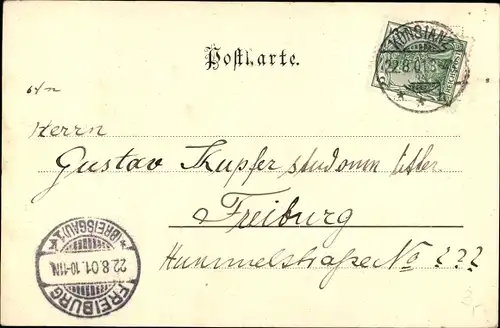 KONSTANZ
22.8.01.
Postkarte.
Herrn
Gustav Kupfer
Freiburg
Hummelstraße No ???
FREIBURG
22.8.01.10-11N.
* (BREISGAU) 1 *